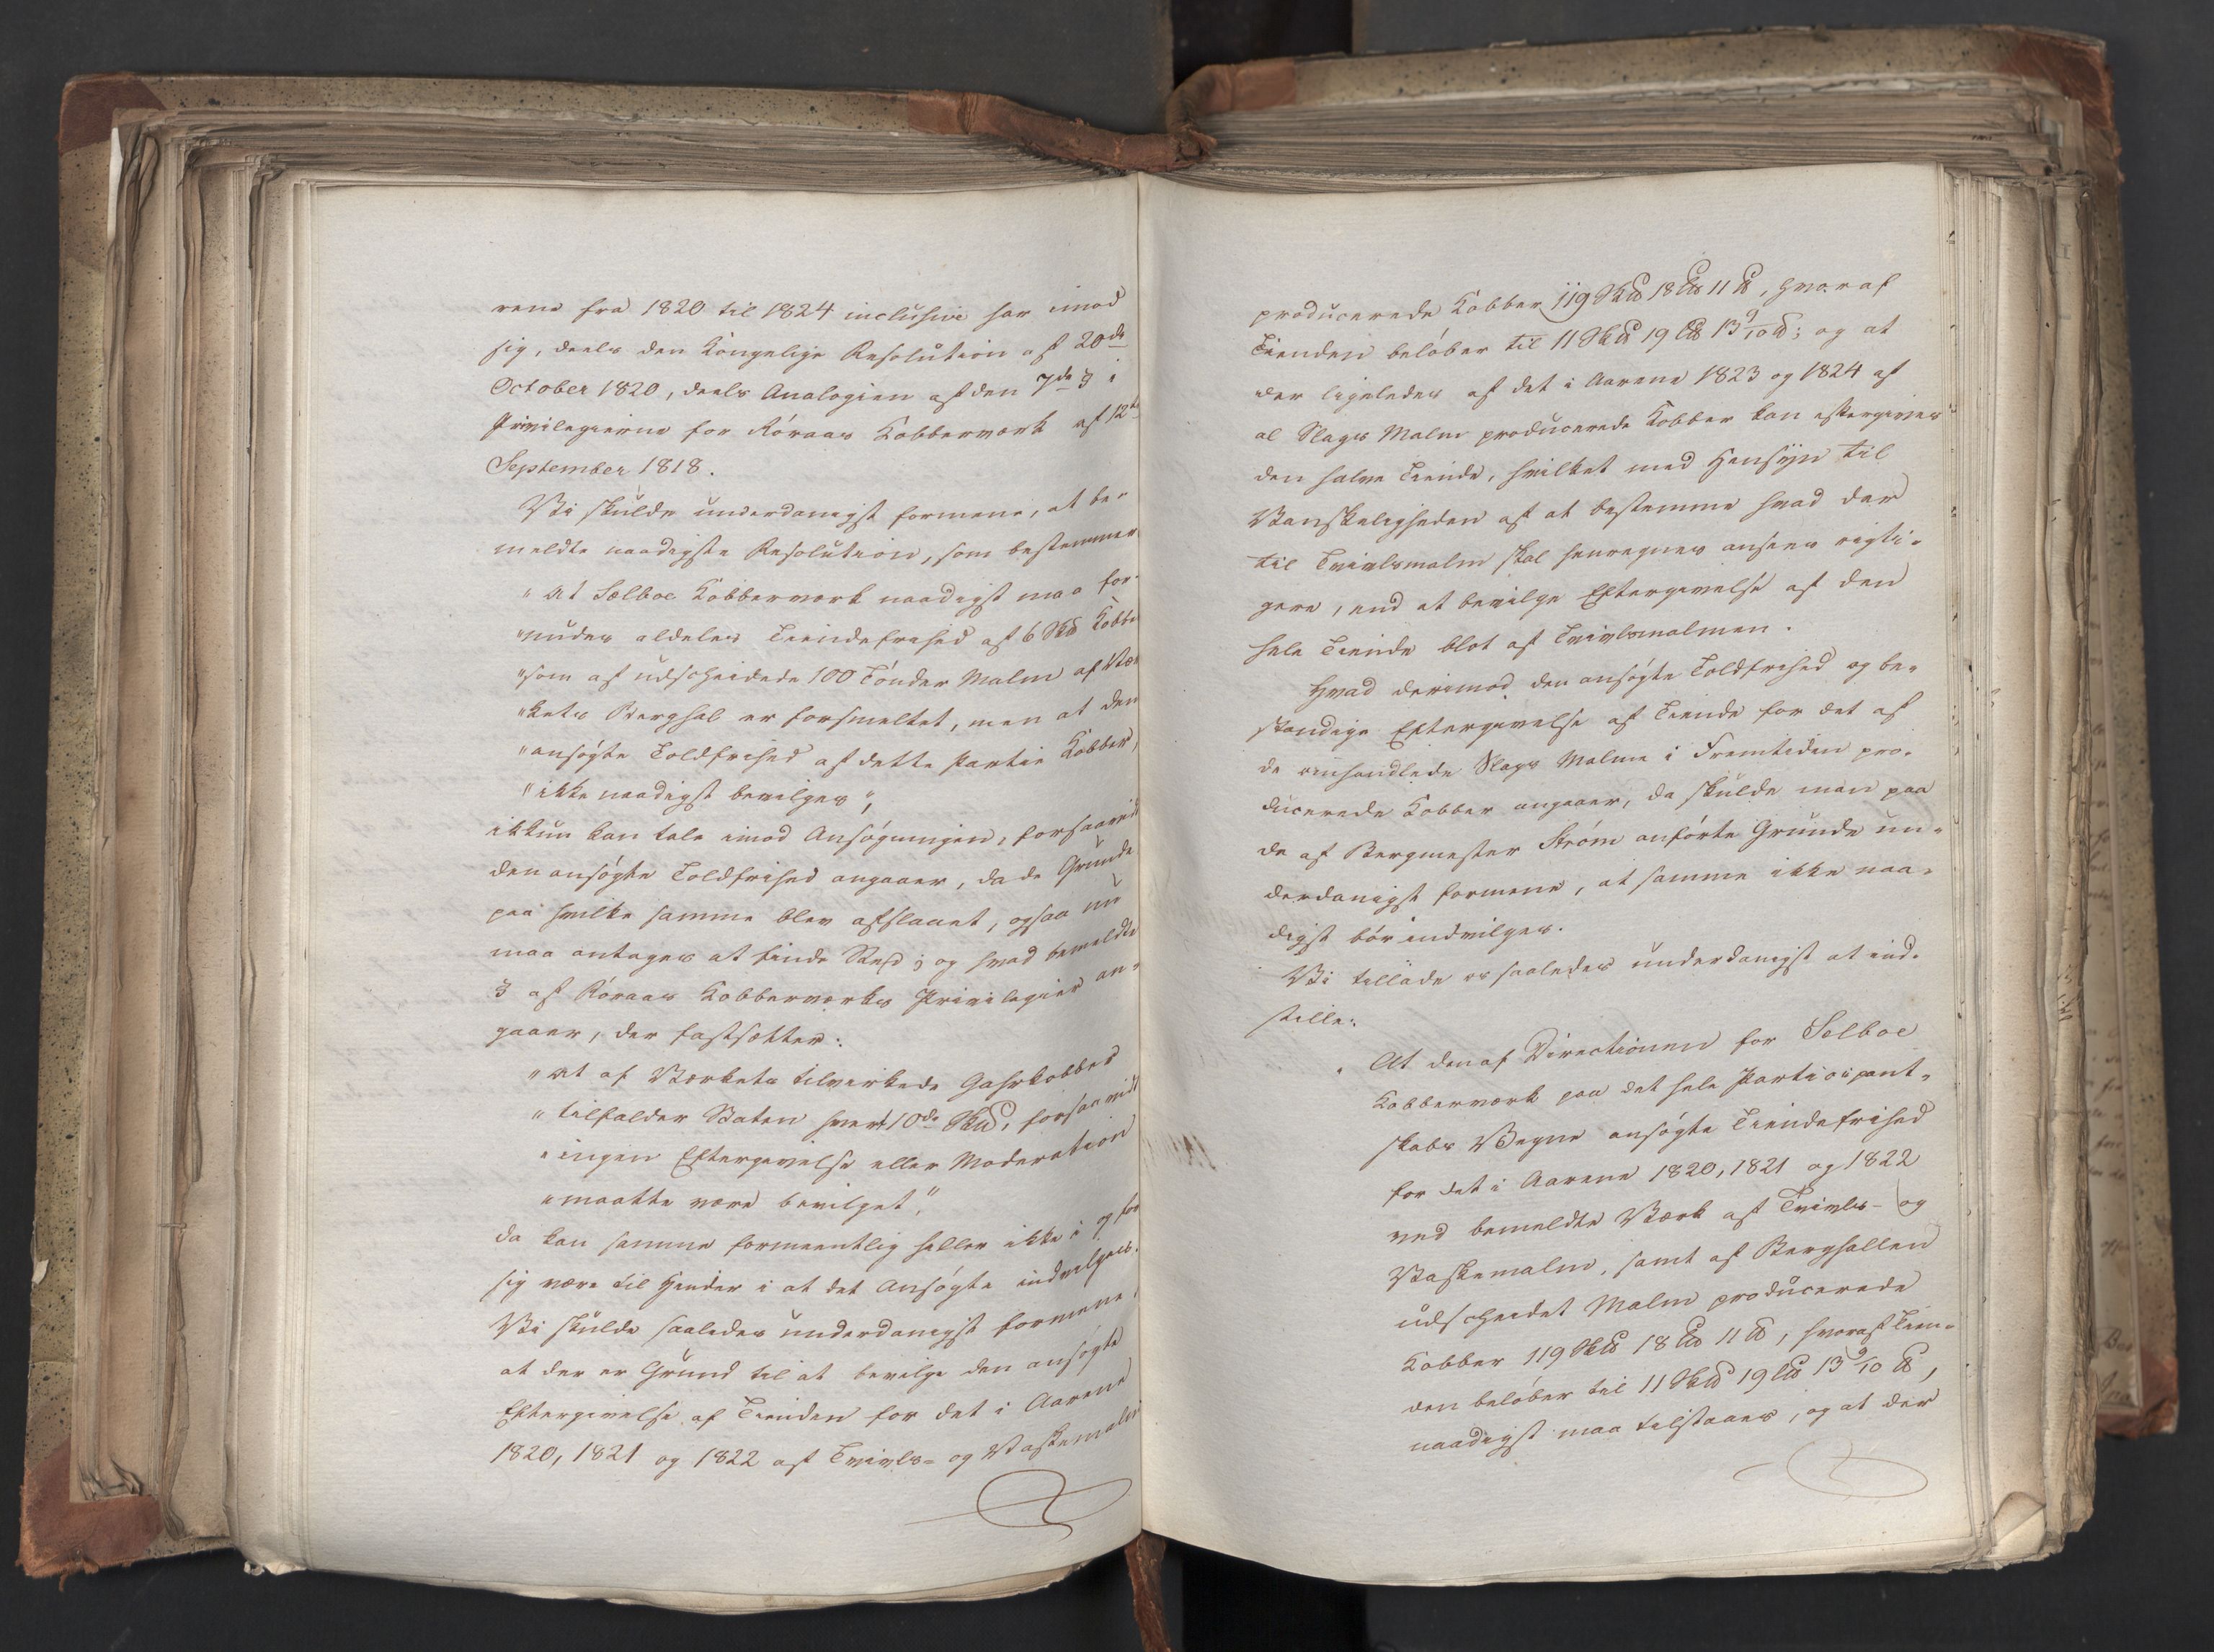 rene fra 1820 til 1824 inclusive har imod
sig, deels den Kongelige Resolution af 20de
October 1820, deels Analogien af den 7de § i
Privilegierne for Röraas Kobberværk af 12te
September 1818.
Vi skulde underdanigst formene, at be-
meldte naadigste Resolution, som bestemmer
"At Selboe Kobberværk naadigst maa for-
"undes aldeles Tiendefrihed af 6 Sk℔ Kobber
"som af udscheidede 100 Tönder Malm af Vær
"kets Berghal er forsmeltet, men at den
"ansögte Toldfrihed af dette Partie Kobber,
"ikke naadigst bevilges",
ikkun kan tale imod Ansögningen, forsaavidt
den ansögte Toldfrihed angaaer, da de Grunde
paa hvilke samme blev afslaaet, ogsaa nu
maa antages at finde Sted; og hvad bemeldte
§ af Röraas Kobberværks Privilegier an-
gaaer, der fastsætter:
"At af Værkets tilvirkede Gahrkobber
"tilfalder Staten hvert 10de Sk℔, forsaavidt
"ingen Eftergivelse eller Moderation
"maatte være bevilget",
da kan samme formeentlig heller ikke i og for
sig være til Hinder i at det Ansögte indvilges.
Vi skulde saaledes underdanigst formene,
at der er Grund til at bevilge den ansögte
Eftergivelse af Tienden for det i Aarene
1820, 1821 og 1822 af Tvivls- og Vaskemalm
producerede Kobber 119 Sk℔ 18 L℔ 11 ℔, hvoraf
Tienden belöber til 11 Sk℔ 19 L℔ 13 9/10 ℔; og at
der ligeledes af det i Aarene 1823 og 1824 af
al Slags Malm producerede Kobber kan eftergives
den halve Tiende, hvilket med Hensyn til
Vanskeligheden af at bestemme hvad der
til Tvivlsmalm skal henregnes ansees rigti-
gere, end at bevilge Eftergivelse af den
hele Tiende blot af Tvivlsmalmen.
Hvad derimod den ansögte Toldfrihed og be-
standige Eftergivelse af Tiende for det af
de omhandlede Slags Malme i Fremtiden pro-
ducerede Kobber angaaer, da skulde man paa
de af Bergmester Ström anförte Grunde un-
derdanigst formene, at samme ikke naa-
digst bör indvilges.
Vi tillade os saaledes underdanigst at ind-
stille:
At den af Directionen for Selboe
Kobberværk paa det hele Participant-
skabs Vegne ansögte Tiendefrihed
for det i Aarene 1820, 1821 og 1822
ved bemeldte Værk af Tvivls- og
Vaskemalm, samt af Berghallen
udscheidet Malm producerede
Kobber 119 Sk℔ 18 L℔ 11 ℔, hvoraf Tien-
den belöber til 11 Sk℔ 19 L℔ 13 9/10 ℔,
naadigst maa tilstaaes, og at der